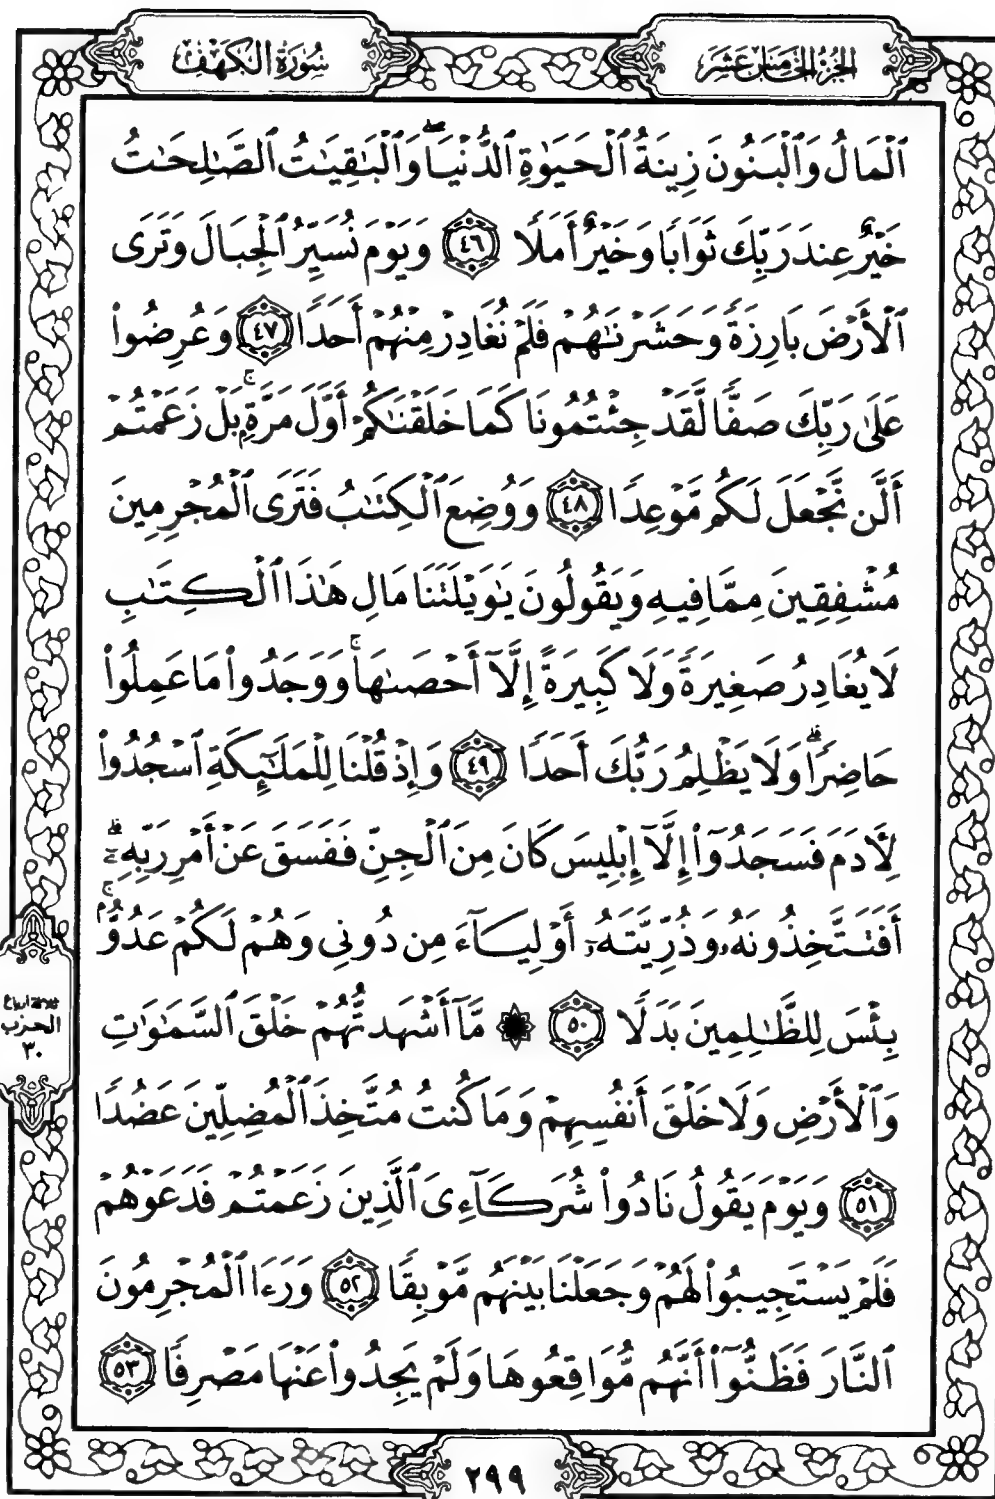 الجزء الخامس عشر
سورة الكهف
ٱلْمَالُ وَٱلْبَنُونَ زِينَةُ ٱلْحَيَوٰةِ ٱلدُّنْيَاۖ وَٱلْبَٰقِيَٰتُ ٱلصَّٰلِحَٰتُ
خَيْرٌ عِندَ رَبِّكَ ثَوَابًا وَخَيْرٌ أَمَلًا ٤٦ وَيَوْمَ نُسَيِّرُ ٱلْجِبَالَ وَتَرَى
ٱلْأَرْضَ بَارِزَةً وَحَشَرْنَٰهُمْ فَلَمْ نُغَادِرْ مِنْهُمْ أَحَدًا ٤٧ وَعُرِضُوا۟
عَلَىٰ رَبِّكَ صَفًّا لَّقَدْ جِئْتُمُونَا كَمَا خَلَقْنَٰكُمْ أَوَّلَ مَرَّةٍۭۚ بَلْ زَعَمْتُمْ
أَلَّن نَّجْعَلَ لَكُم مَّوْعِدًا ٤٨ وَوُضِعَ ٱلْكِتَٰبُ فَتَرَى ٱلْمُجْرِمِينَ
مُشْفِقِينَ مِمَّا فِيهِ وَيَقُولُونَ يَٰوَيْلَتَنَا مَالِ هَٰذَا ٱلْكِتَٰبِ
لَا يُغَادِرُ صَغِيرَةً وَلَا كَبِيرَةً إِلَّآ أَحْصَىٰهَاۚ وَوَجَدُوا۟ مَا عَمِلُوا۟
حَاضِرًاۗ وَلَا يَظْلِمُ رَبُّكَ أَحَدًا ٤٩ وَإِذْ قُلْنَا لِلْمَلَٰٓئِكَةِ ٱسْجُدُوا۟
لِءَادَمَ فَسَجَدُوٓا۟ إِلَّآ إِبْلِيسَ كَانَ مِنَ ٱلْجِنِّ فَفَسَقَ عَنْ أَمْرِ رَبِّهِۦٓۗ
أَفَتَتَّخِذُونَهُۥ وَذُرِّيَّتَهُۥٓ أَوْلِيَآءَ مِن دُونِى وَهُمْ لَكُمْ عَدُوٌّۢۚ
بِئْسَ لِلظَّٰلِمِينَ بَدَلًا ٥٠ ۞ مَّآ أَشْهَدتُّهُمْ خَلْقَ ٱلسَّمَٰوَٰتِ
وَٱلْأَرْضِ وَلَا خَلْقَ أَنفُسِهِمْ وَمَا كُنتُ مُتَّخِذَ ٱلْمُضِلِّينَ عَضُدًا
٥١ وَيَوْمَ يَقُولُ نَادُوا۟ شُرَكَآءِىَ ٱلَّذِينَ زَعَمْتُمْ فَدَعَوْهُمْ
فَلَمْ يَسْتَجِيبُوا۟ لَهُمْ وَجَعَلْنَا بَيْنَهُم مَّوْبِقًا ٥٢ وَرَءَا ٱلْمُجْرِمُونَ
ٱلنَّارَ فَظَنُّوٓا۟ أَنَّهُم مُّوَاقِعُوهَا وَلَمْ يَجِدُوا۟ عَنْهَا مَصْرِفًا ٥٣
ثلاثة أرباع
الحزب
٣٠
٢٩٩